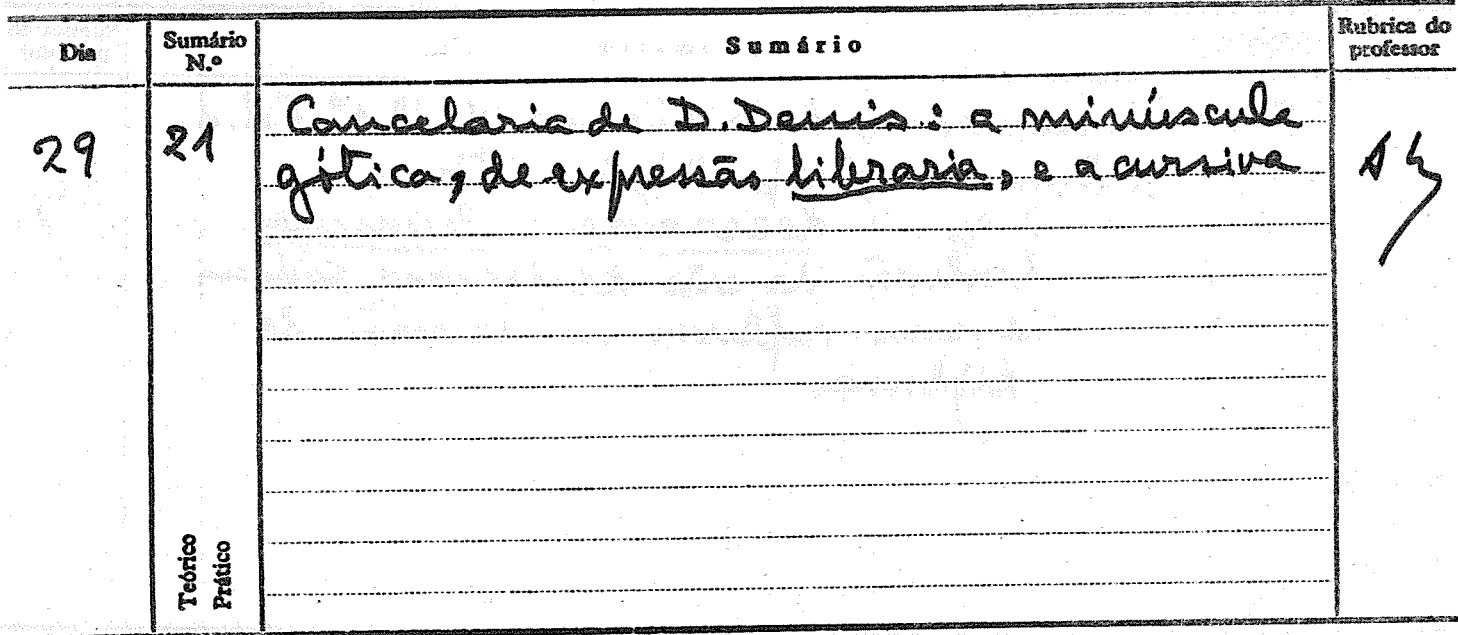 Dia
Sumário N.º
Sumário
Rubrica do professor
29
21
Cancelaria de D. Denis: a minúscula
gótica, de expressão libraria, e a cursiva
Teórico
Prático